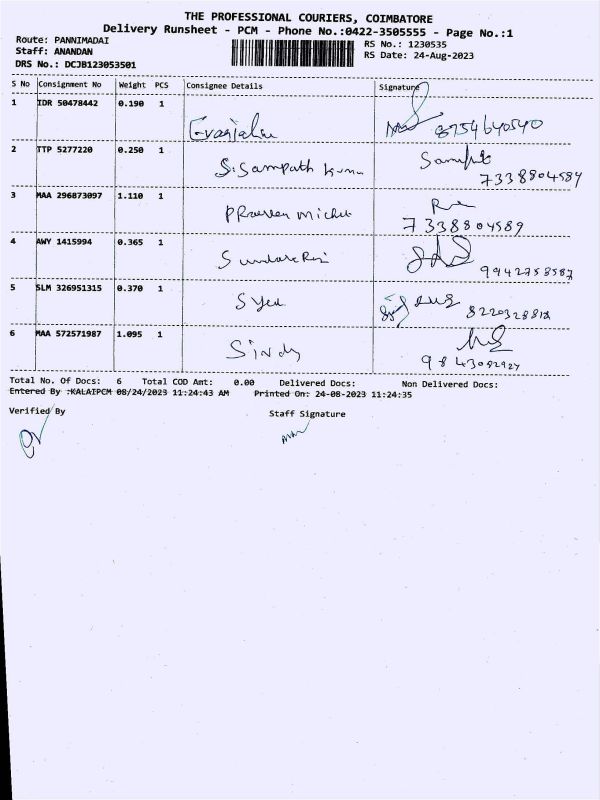 THE PROFESSIONAL COURIERS, COIMBATORE
Delivery Runsheet - PCM - Phone No.:0422-3505555 - Page No.:1
Route: PANNIMADAI
Staff: ANANDAN
DRS No.: DCJB123053501
RS No.: 1230535
RS Date: 24-Aug-2023
S No Consignment No Weight PCS Consignee Details Signature
1 IDR 50478442 0.190 1 8754640540
2 TTP 5277220 0.250 1 S. Sampath Kumar
7338804589
3 MAA 296873097 1.110 1
7338804589
4 AWY 1415994 0.365 1
9942758587
5 SLM 326951315 0.370 1 Syed
6 MAA 572571987 1.095 1 Sindy
Total No. Of Docs: 6 Total COD Amt: 0.00 Delivered Docs: Non Delivered Docs:
Entered By :KALAIPCM 08/24/2023 11:24:43 AM Printed On: 24-08-2023 11:24:35
Verified By Staff Signature